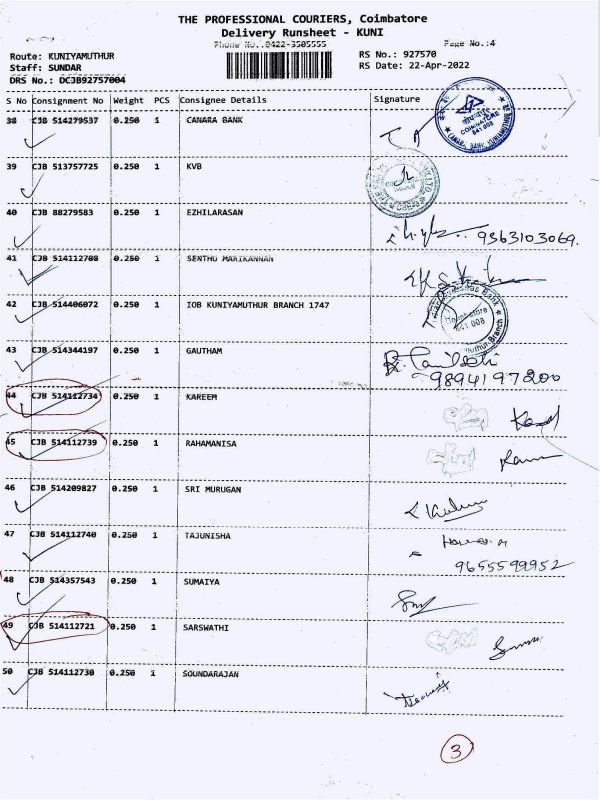 THE PROFESSIONAL COURIERS, Coimbatore
Delivery Runsheet - KUNI
Phone No.:0422-3505555 Page No.:4
Route: KUNIYAMUTHUR RS No.: 927570
Staff: SUNDAR RS Date: 22-Apr-2022
DRS No.: DCJB92757004
S No Consignment No Weight PCS Consignee Details Signature
38 CJB 514279537 0.250 1 CANARA BANK
COIMBATORE
641 008
39 CJB 513757725 0.250 1 KVB
40 CJB 88279583 0.250 1 EZHILARASAN
9363103069.
41 CJB 514112708 0.250 1 SENTHU MARIKANNAN
42 CJB 514406072 0.250 1 IOB KUNIYAMUTHUR BRANCH 1747
Overseas Bank
641 008
Branch
43 CJB 514344197 0.250 1 GAUTHAM
9894197200
44 CJB 514112734 0.250 1 KAREEM
45 CJB 514112739 0.250 1 RAHAMANISA
46 CJB 514209827 0.250 1 SRI MURUGAN
47 CJB 514112740 0.250 1 TAJUNISHA
9655599952
48 CJB 514357543 0.250 1 SUMAIYA
49 CJB 514112721 0.250 1 SARSWATHI
50 CJB 514112730 0.250 1 SOUNDARAJAN
3